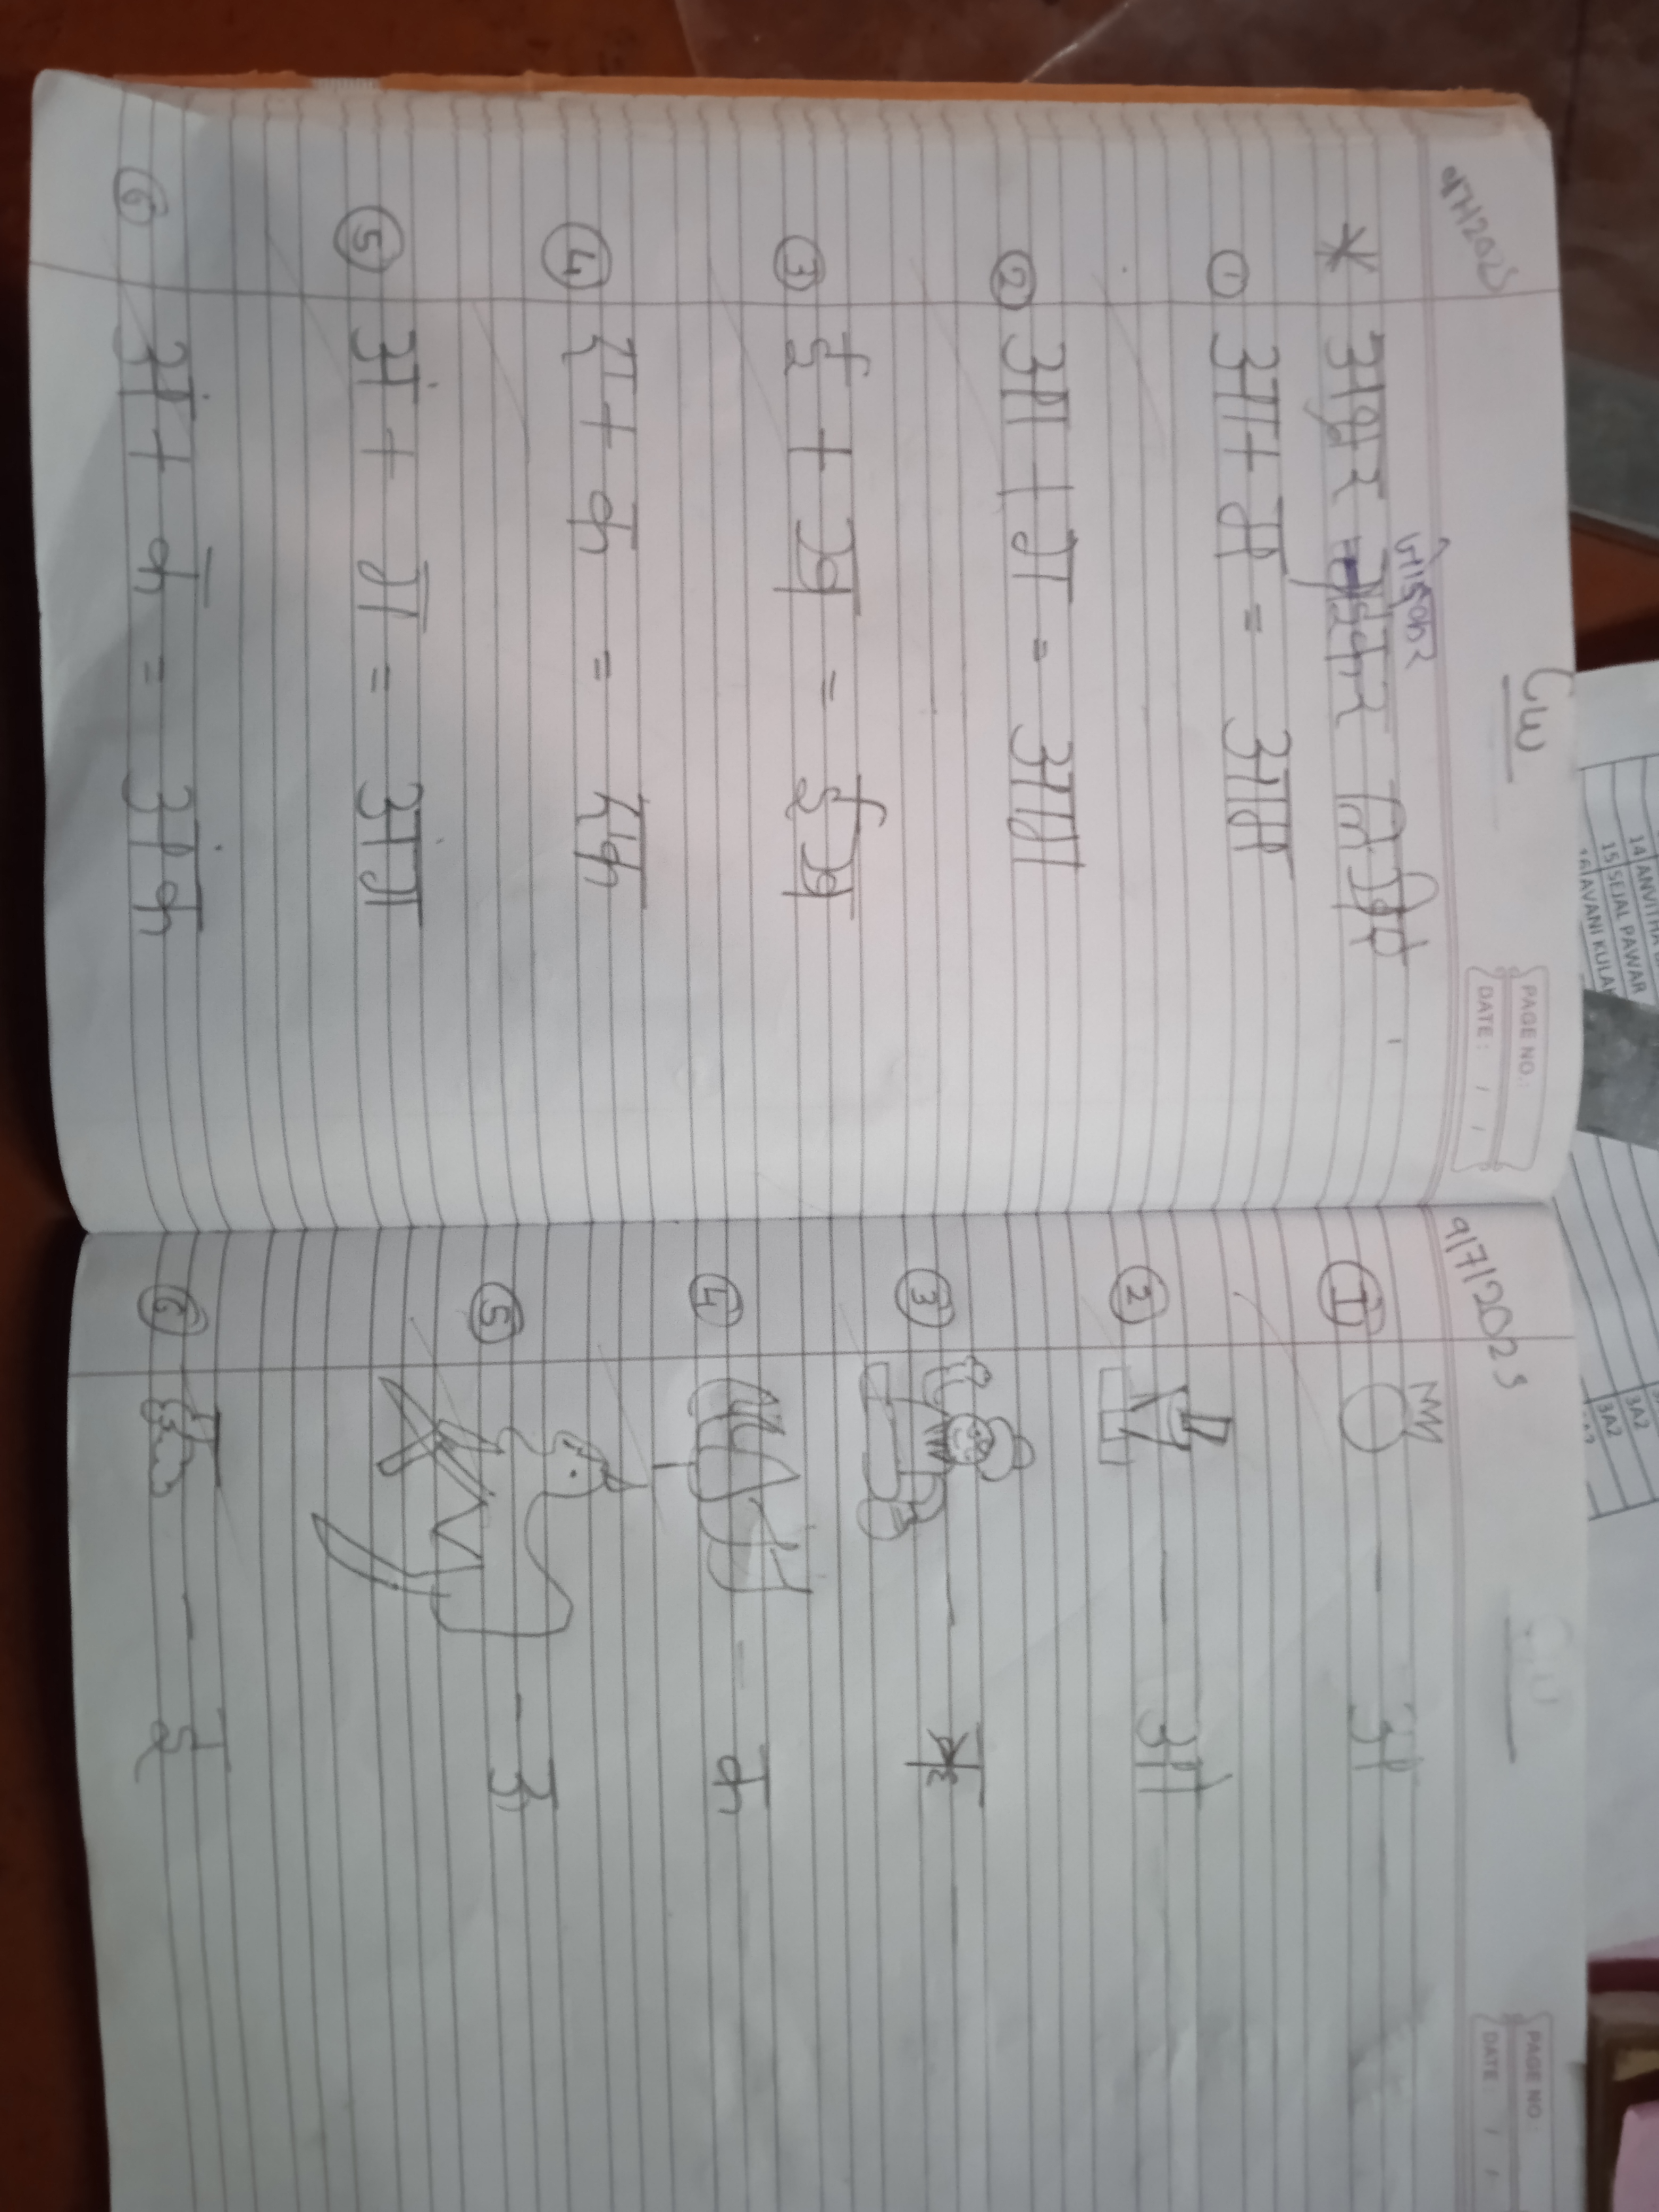 Cw
PAGE NO.:
DATE: / /
जोड़कर
* अक्षर लिखिए
① आ + म = आम
② आ + ग = आग
③ ई + ख = ईख
④ ए + क = एक
⑤ अं + ग = अंग
⑥ अं + क = अंक
9/7/2025
PAGE NO.:
DATE: / /
① - अ
② - आ
③ -
④ - क
⑤ - उ
⑥ - ई
14 ANVITHA
15 SEJAL PAWAR
16 AVANI KULA
3A2
3A2